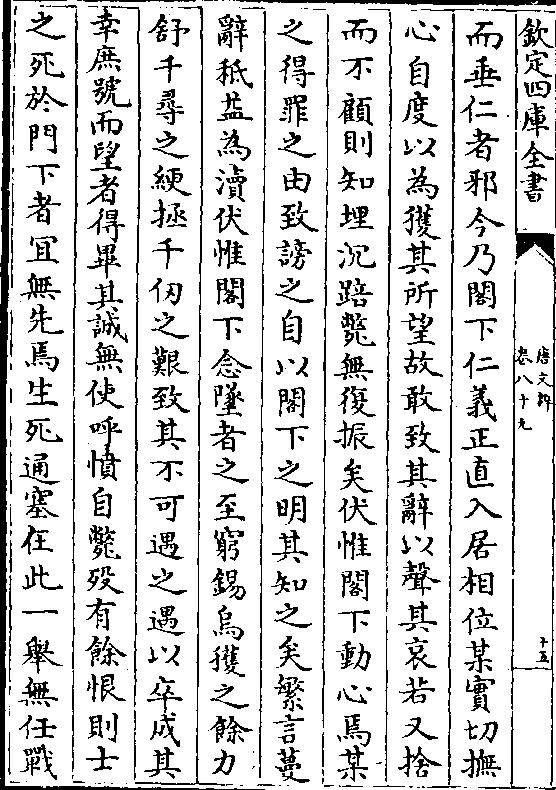 欽定四庫全書
唐文粹
卷八十九
十五
而垂仁者邪今乃閣下仁義正直入居相位某實切撫
心自度以為獲其所望故敢致其辭以聲其哀若又捨
而不顧則知埋沉踣斃無復振矣伏惟閣下動心焉某
之得罪之由致謗之自以閣下之明其知之矣繁言蔓
辭秪益為瀆伏惟閣下念墜者之至窮錫烏獲之餘力
舒千尋之綆拯千仞之艱致其不可遇之遇以卒成其
幸庶號而望者得畢其誠無使呼憤自斃歿有餘恨則士
之死於門下者宜無先焉生死通塞在此一舉無任戰